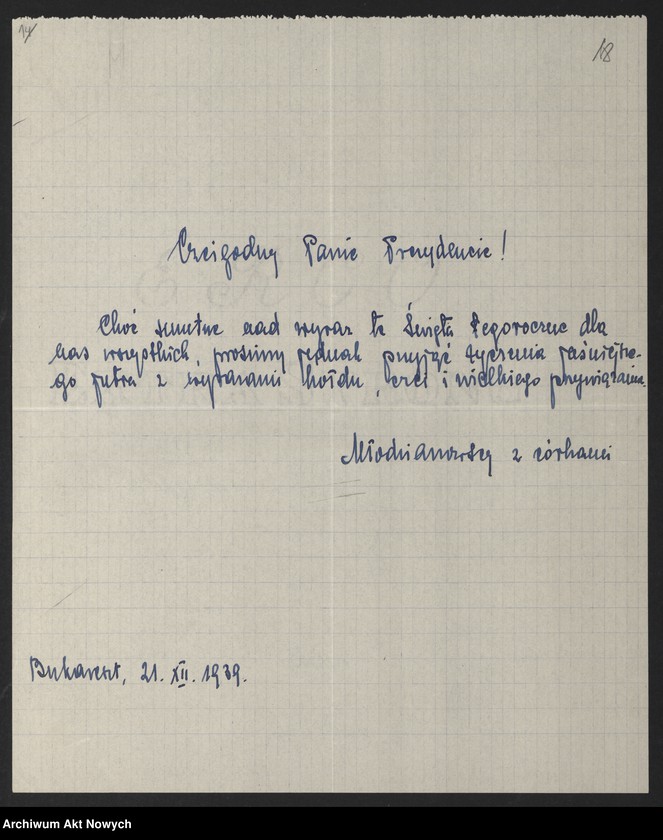 14
18
Czcigodny Panie Prezydencie!
Choć smutne nad wyraz te Święta tegoroczne dla
nas wszystkich, prosimy jednak przyjąć życzenia jaśniejsze-
go jutra z wyrazami hołdu, czci i wielkiego przywiązania.
Młodzianowscy z córkami
Bukareszt, 21. XII. 1939.
Archiwum Akt Nowych